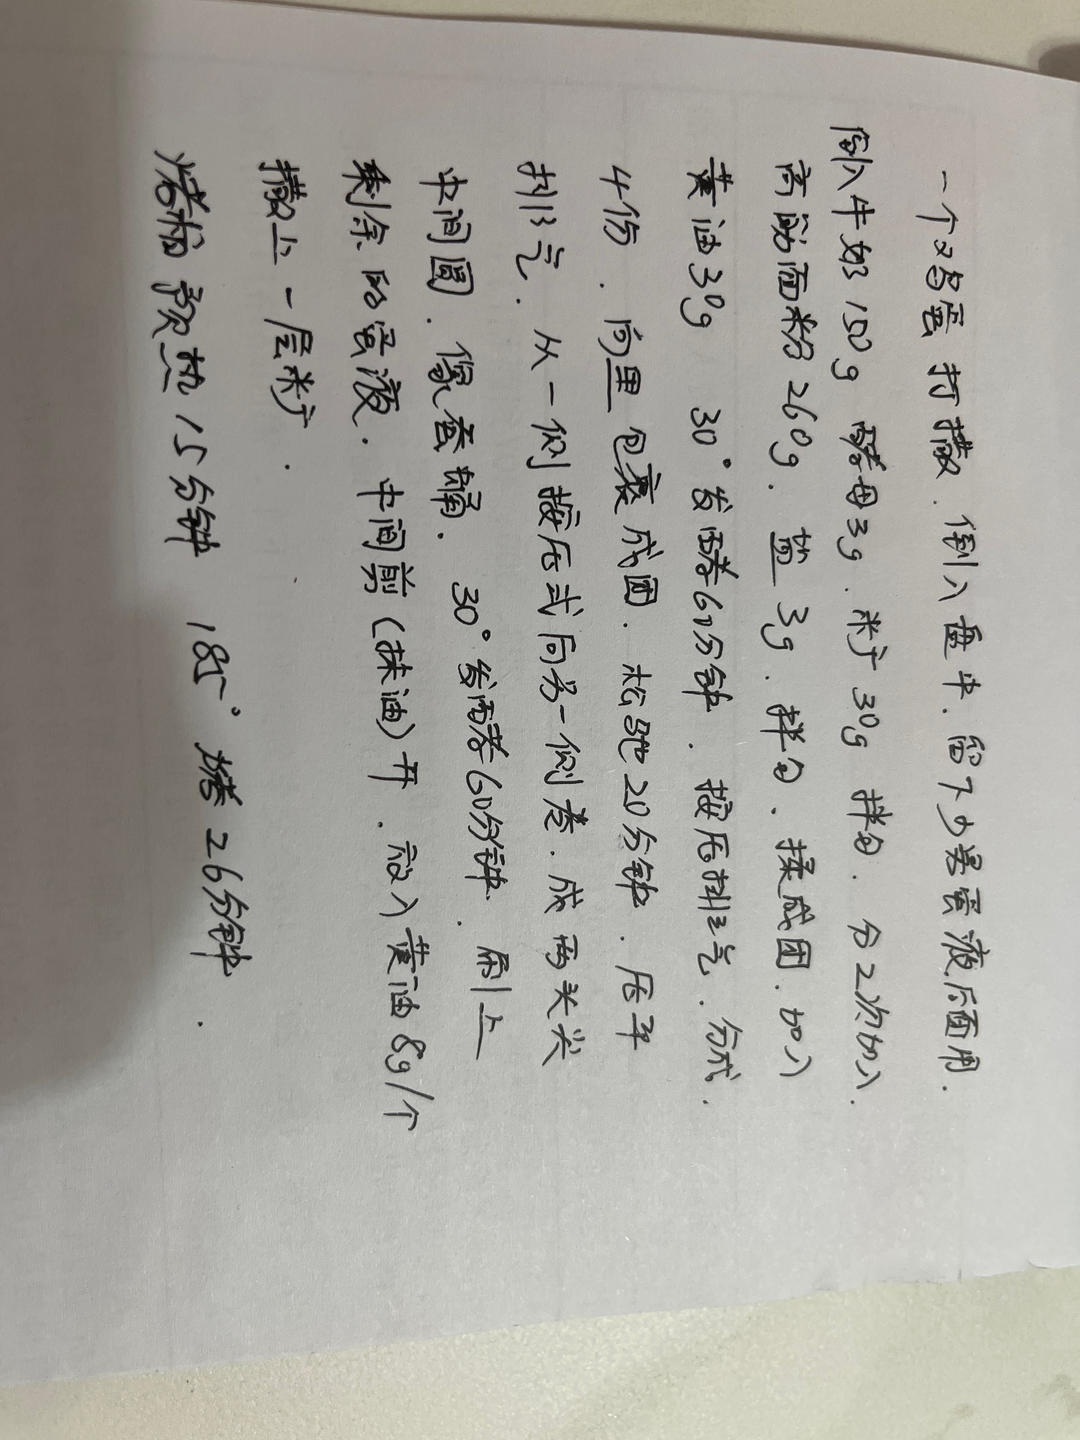 一个鸡蛋打撒.倒入盘中.留下少量蛋液后面用.
倒入牛奶150g 酵母3g.米广30g 拌匀.分2次加入.
高筋面粉260g.盐3g.拌匀.揉成团.加入
黄油30g 30°发酵60分钟.按压排气.分成.
4份.向里包裹成团.松弛20分钟.压平
排气.从一侧按压式向另一侧卷.成两头尖
中间圆.像蚕蛹.30°发酵60分钟.刷上
剩余的蛋液.中间剪(抹油)开.放入黄油8g/个
撒上一层米广.
烤箱预热15分钟 185°烤26分钟.